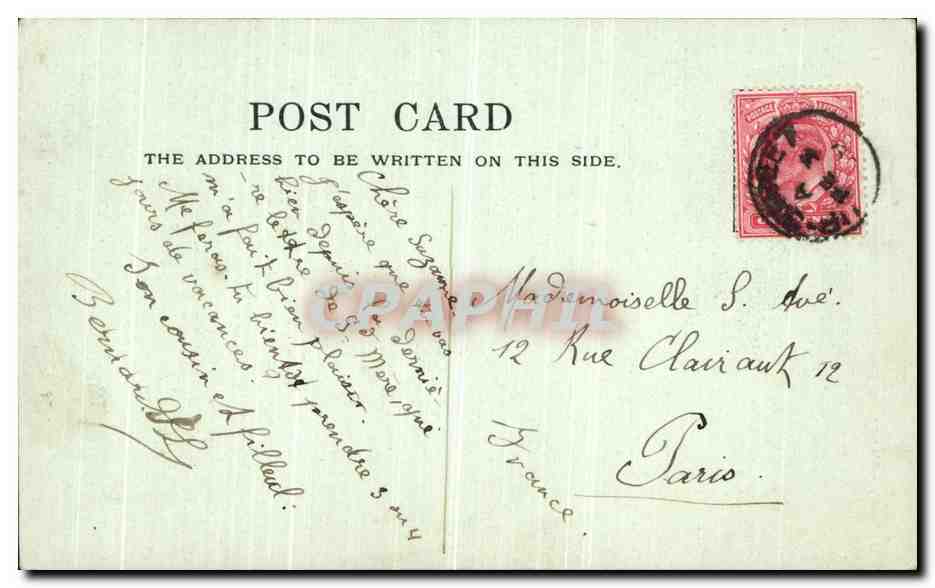 POST CARD
THE ADDRESS TO BE WRITTEN ON THIS SIDE.
Chère Suzanne
J'espère que tu vas
bien depuis ta derniè-
-re lettre de Gd Mère, qui
m'a fait bien plaisir.
Me feras-tu bientôt prendre 3 ou 4
jours de vacances.
Ton cousin et filleul.
Bernard
Mademoiselle S. Avé.
12 Rue Clairaut 12
Paris.
France.
CPAPHIL